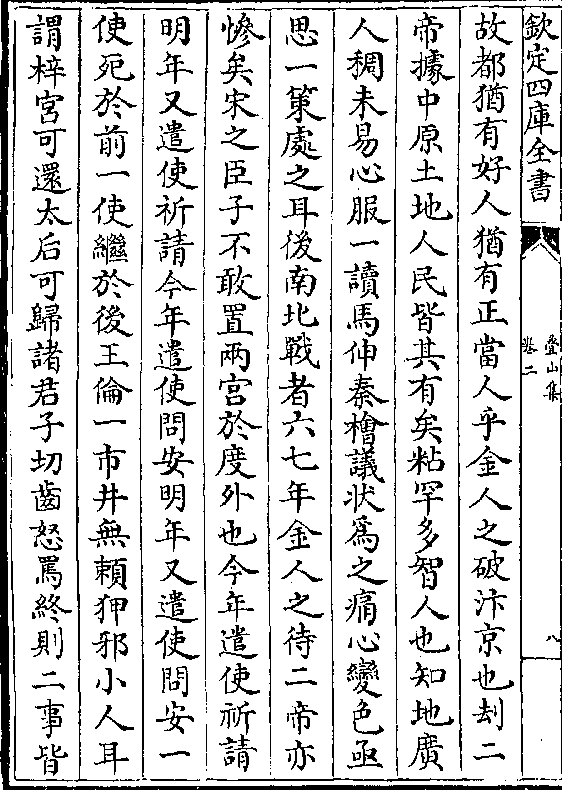 欽定四庫全書
疊山集
卷二
八
故都猶有好人猶有正當人乎金人之破汴京也刦二
帝據中原土地人民皆其有矣粘罕多智人也知地廣
人稠未易心服一讀馬伸秦檜議狀為之痛心變色亟
思一策處之耳後南北戰者六七年金人之待二帝亦
慘矣宋之臣子不敢置兩宮於度外也今年遣使祈請
明年又遣使祈請今年遣使問安明年又遣使問安一
使死於前一使繼於後王倫一市井無頼狎邪小人耳
謂梓宮可還太后可歸諸君子切齒怒罵終則二事皆